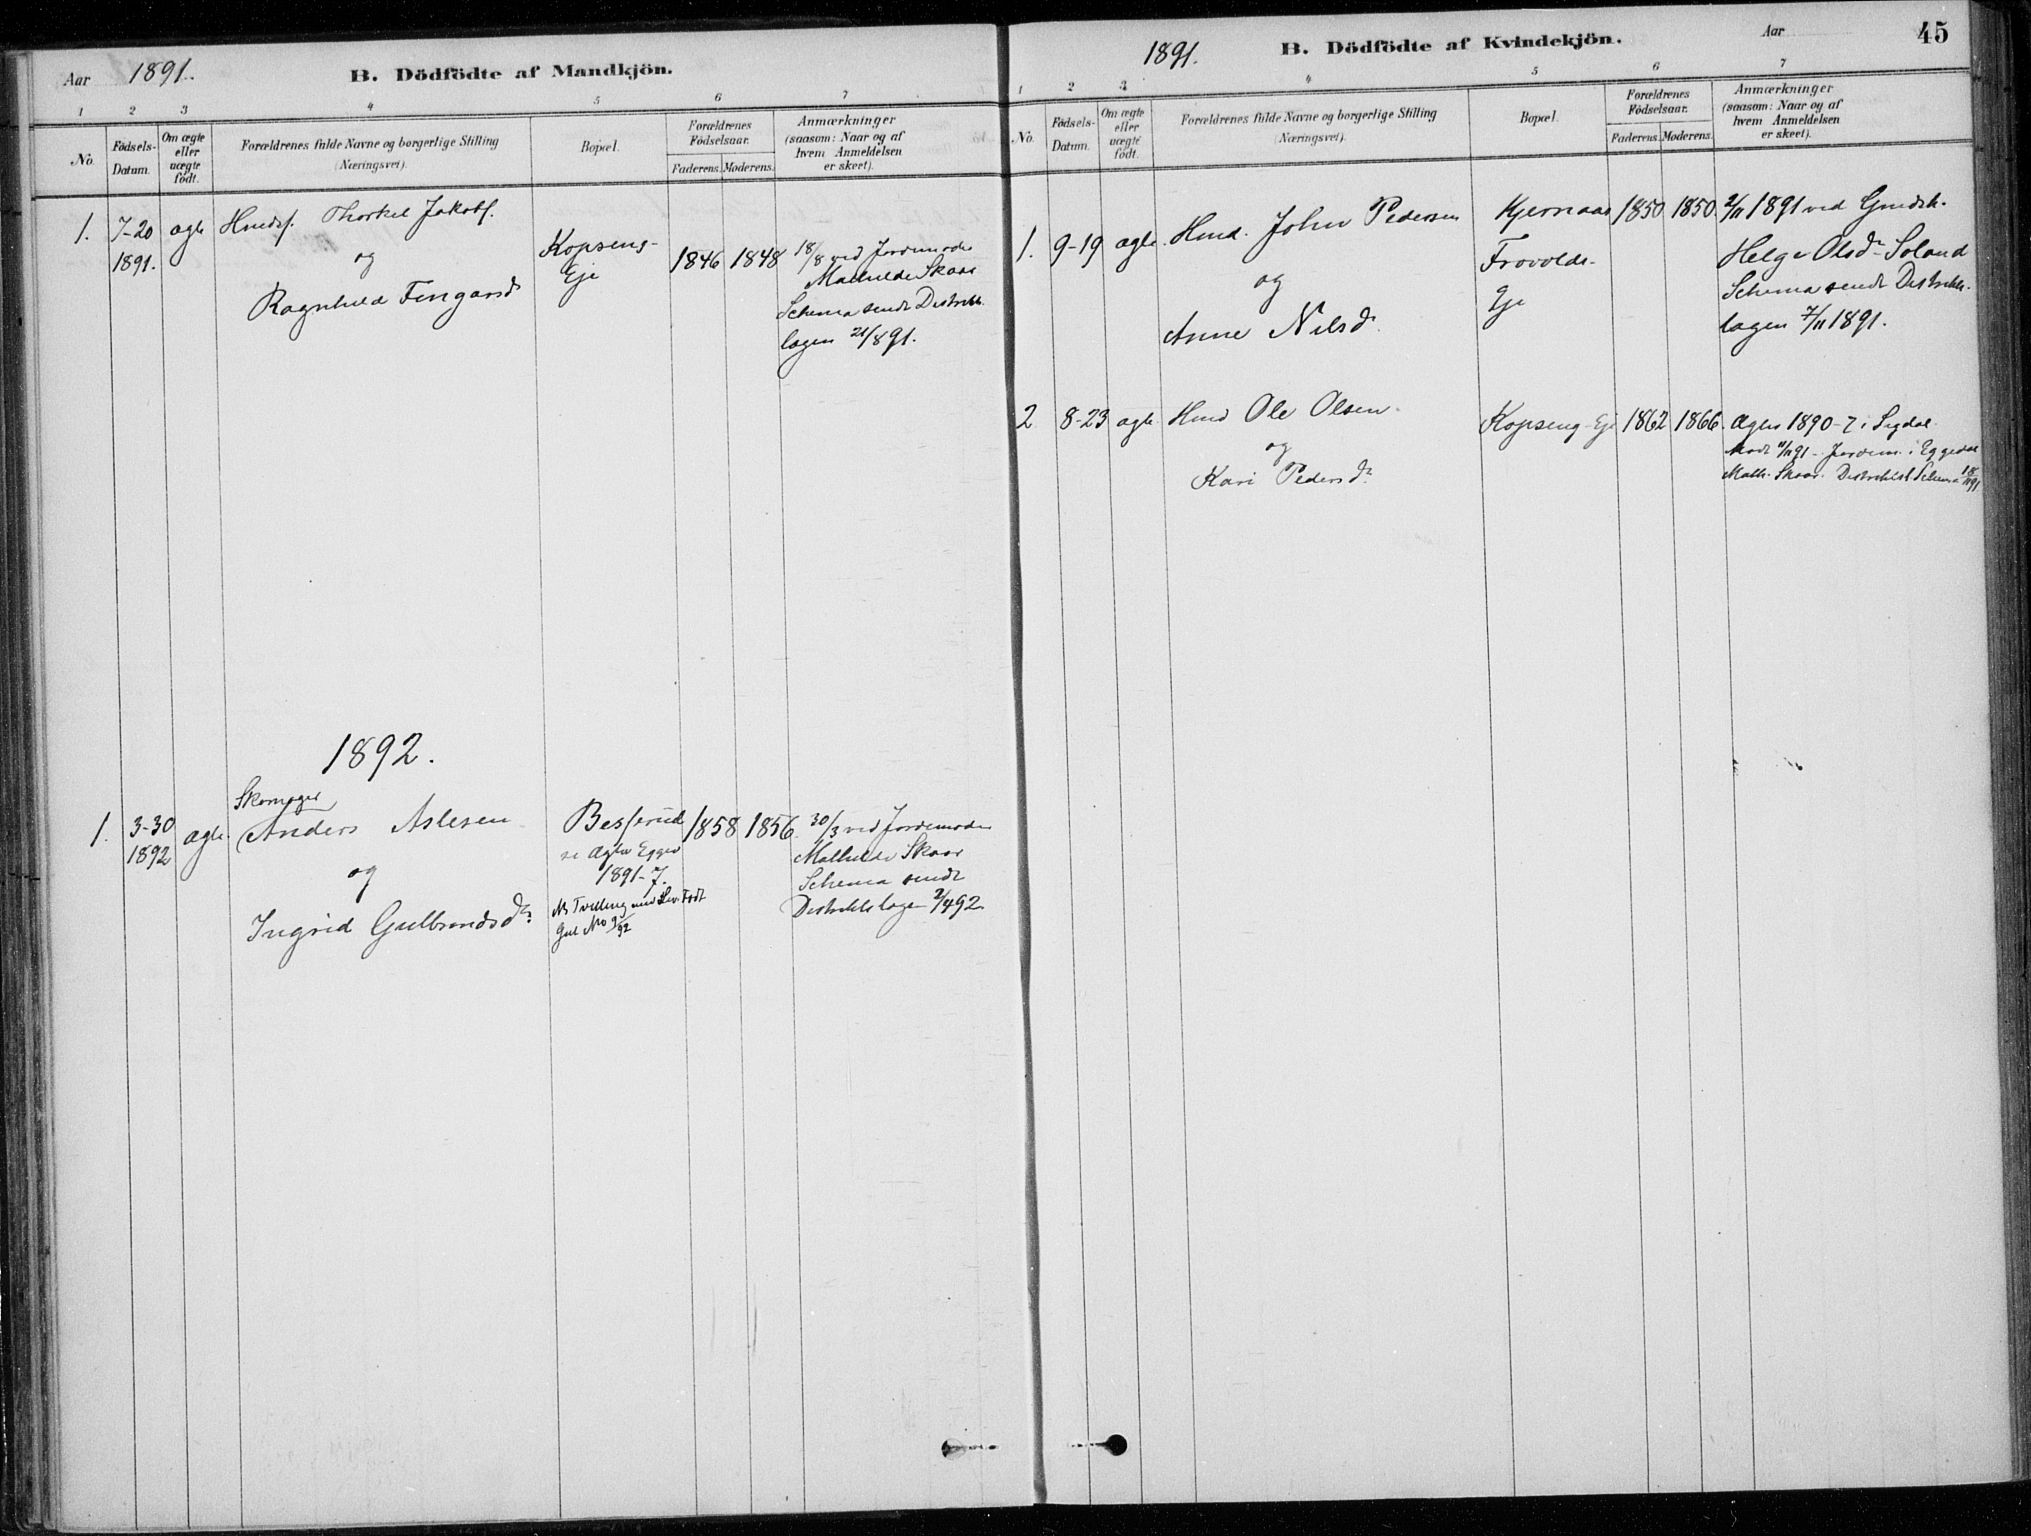 Aar 1891.
B. Dödfödte af Mandkjön.
1 2 3 4 5 6 7
No.
Födsels-Datum.
Om ægte eller uægte födt.
Forældrenes fulde Navne og borgerlige Stilling (Næringsvei).
Bopæl.
Forældrenes Födselsaar.
Faderens. Moderens.
Anmærkninger (saasom: Naar og af hvem Anmeldelsen er skeet).
1. 7-20 1891. ægte
Husds. Thorkel Jakobs.
og
Ragnhild Fingarsd
Kopseng-
Eje
1846 1848
18/8 ved Jordemode
Mathilde Skaar
Schema sendt Distrikts-
lægen 21/8 91.
1892.
1. 3-30 1892 ægte.
Skomager
Anders Aslesen
og
Ingrid Gulbrandsdr.
Besserud
se Ægtev Egger
1891-7.
Nb Tvilling med Lev. Födt
Gut No 9/92
1858 1856
30/3 ved Jordemoder
Mathilde Skaar
Schema sendt
Distriktslægen 2/4 92
1891.
B. Dödfödte af Kvindekjön.
Aar
45
1 2 3 4 5 6 7
No.
Födsels-Datum.
Om ægte eller uægte födt.
Forældrenes fulde Navne og borgerlige Stilling (Næringsvei).
Bopæl.
Forældrenes Födselsaar.
Faderens. Moderens.
Anmærkninger (saasom: Naar og af hvem Anmeldelsen er skeet).
1. 9-19 ægte.
Husd. John Pedersen
og
Anne Nilsdr.
Kjernaas
Frovolds-
Eje
1850 1850
2/11 1891 ved
Helge Olsdr Soland
Schema sendt Distrikts-
lægen 7/11 1891.
2 8-23 ægte
Husd Ole Olsen
og
Kari Pedersdr.
Kopseng-Eje
1862 1866
Ægtev 1890-7 i Sigdal
Jordem. i Eggedal
Math. Skaar. Schema 18/11 91